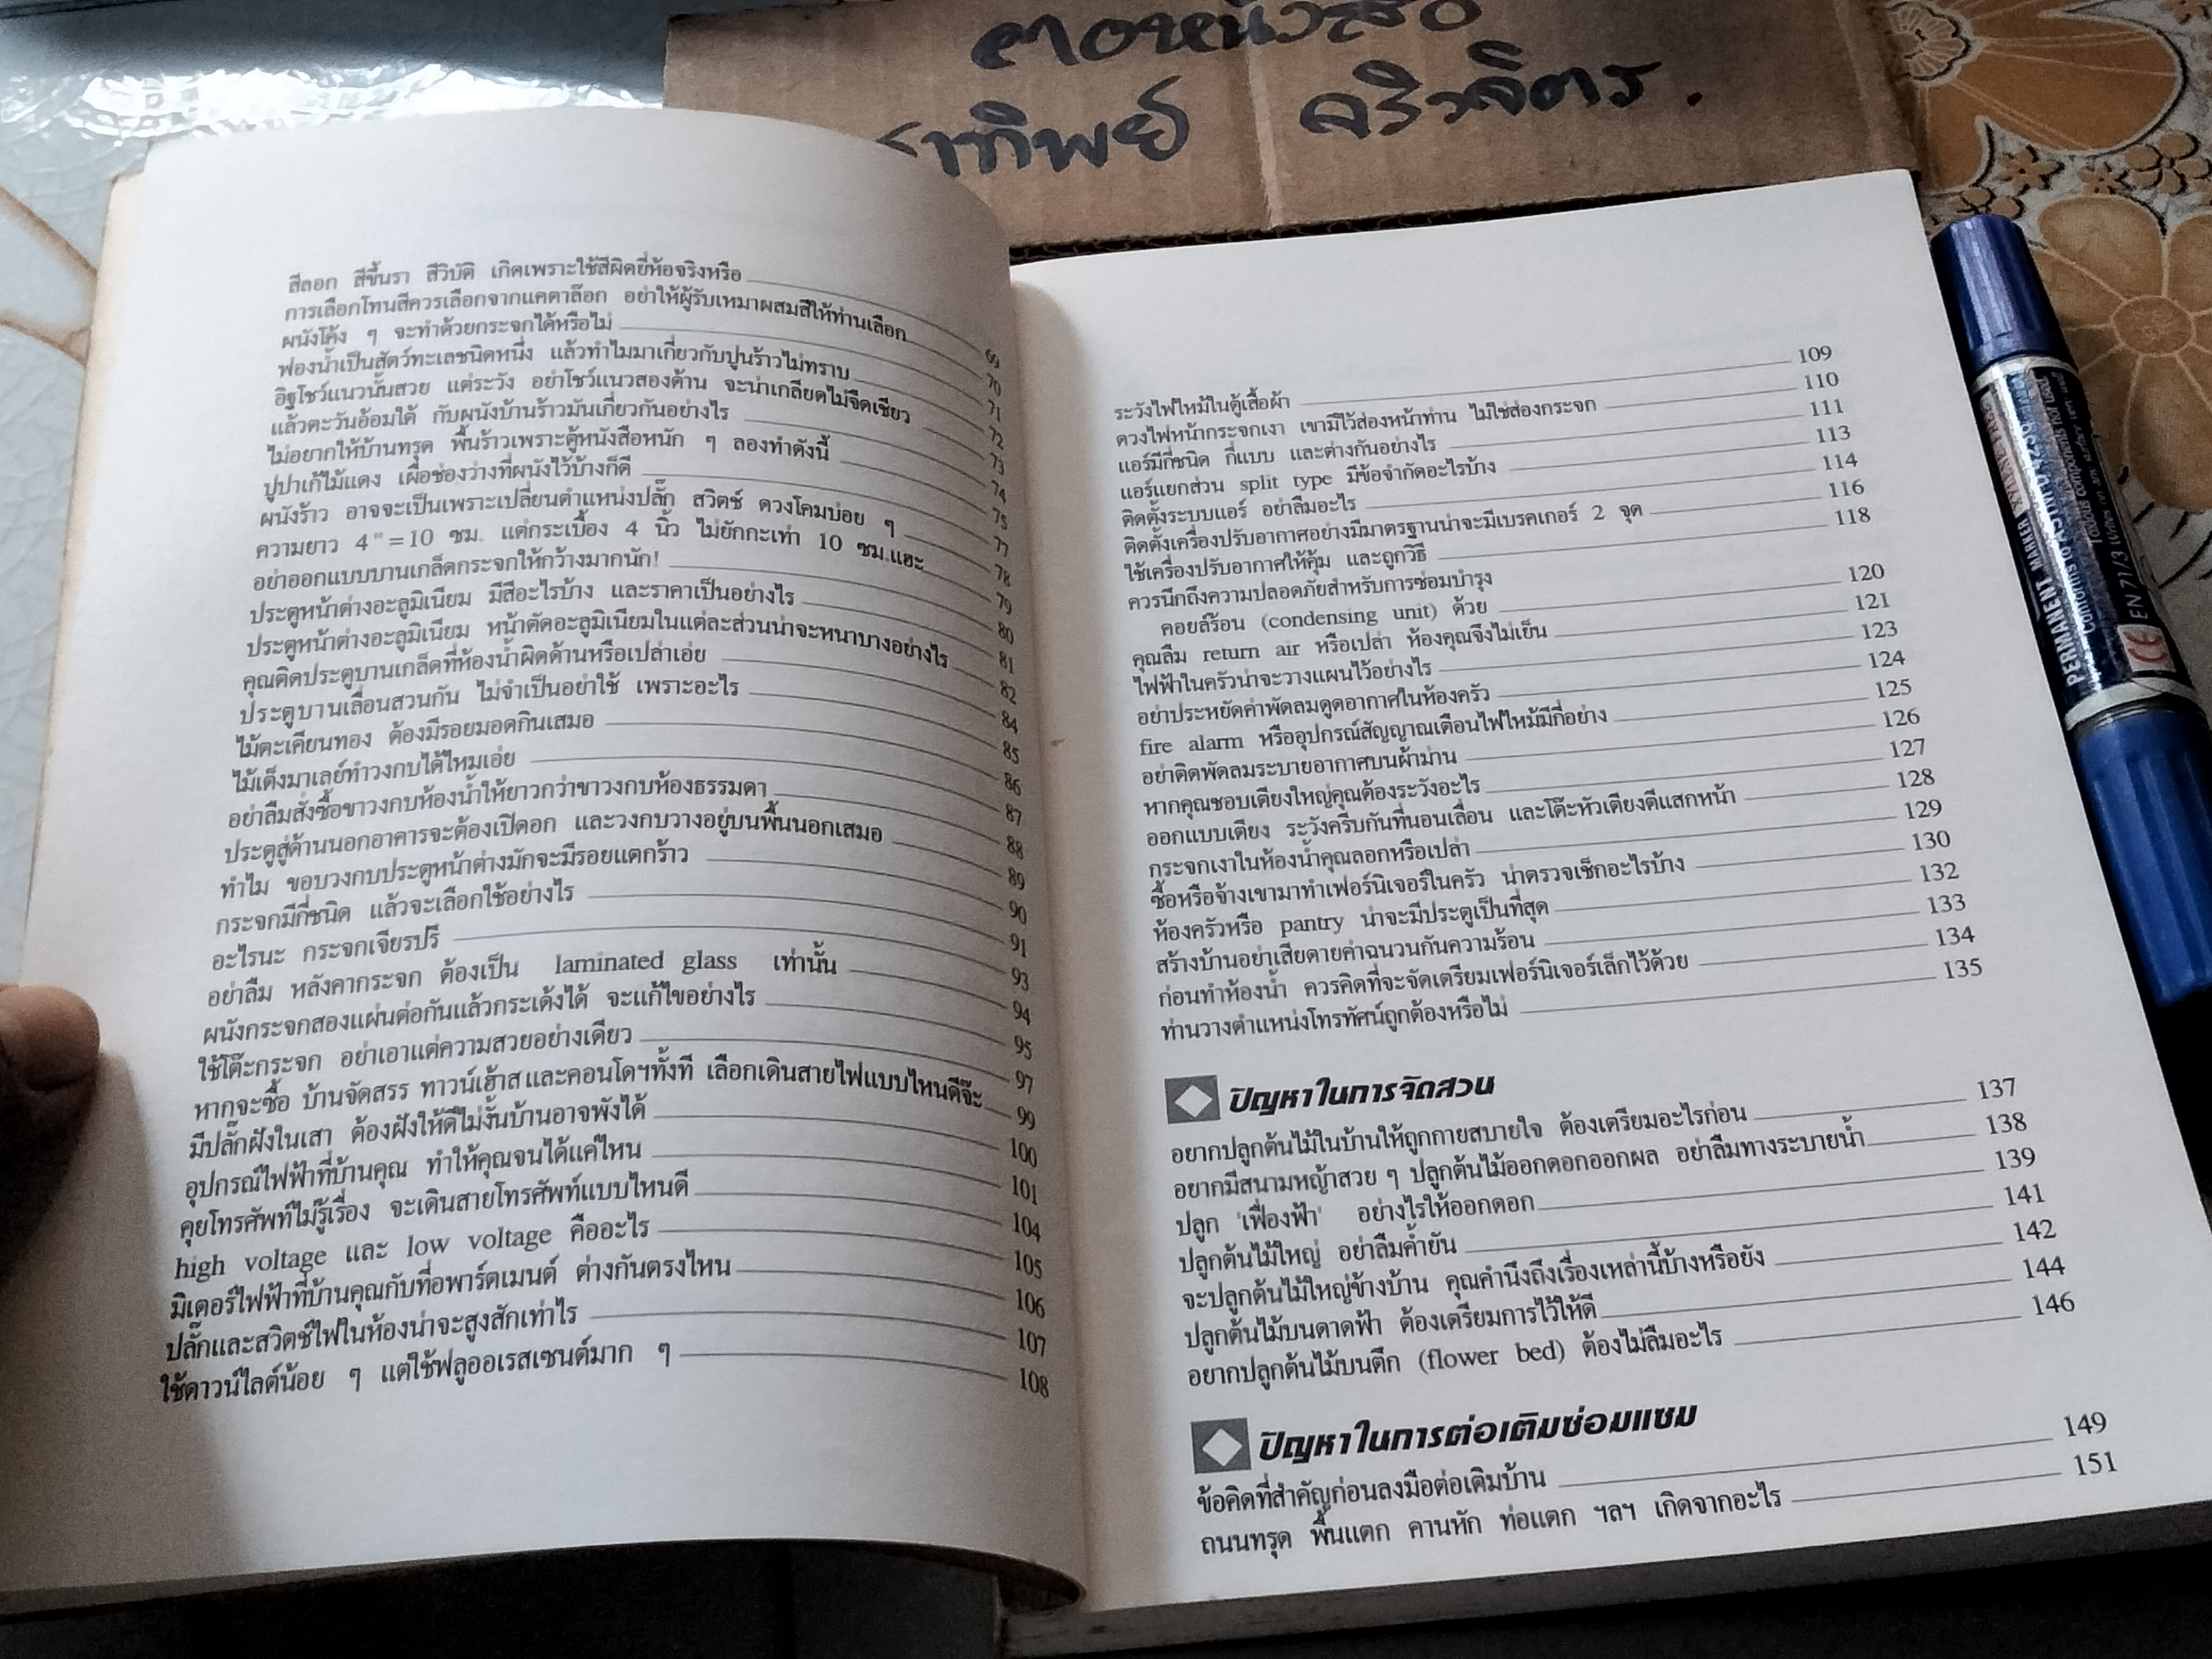 ตอหนังสือ
าทิพย์ ศริวจิตร.
สีลอก สีขึ้นรา สีวิบัติ เกิดเพราะใช้สีผิดยี่ห้อจริงหรือ 69
การเลือกโทนสีควรเลือกจากแคตาล๊อก อย่าให้ผู้รับเหมาผสมสีให้ท่านเลือก 70
ผนังโค้ง ๆ จะทำด้วยกระจกได้หรือไม่ 71
ฟองน้ำเป็นสัตว์ทะเลชนิดหนึ่ง แล้วทำไมมาเกี่ยวกับปูนร้าวไม่ทราบ 72
อิฐโชว์แนวนั้นสวย แต่ระวัง อย่าโชว์แนวสองด้าน จะน่าเกลียดไม่จืดเชียว 73
แล้วตะวันอ้อมใต้ กับผนังบ้านร้าวมันเกี่ยวกันอย่างไร 74
ไม่อยากให้บ้านทรุด พื้นร้าวเพราะตู้หนังสือหนัก ๆ ลองทำดังนี้ 75
ปูปาเก้ไม้แดง เผื่อช่องว่างที่ผนังไว้บ้างก็ดี 77
ผนังร้าว อาจจะเป็นเพราะเปลี่ยนตำแหน่งปลั๊ก สวิตช์ ดวงโคมบ่อย ๆ 78
ความยาว 4"=10 ซม. แต่กระเบื้อง 4 นิ้ว ไม่ยักกะเท่า 10 ซม.แฮะ 79
อย่าออกแบบบานเกล็ดกระจกให้กว้างมากนัก! 80
ประตูหน้าต่างอะลูมิเนียม มีสีอะไรบ้าง และราคาเป็นอย่างไร 81
ประตูหน้าต่างอะลูมิเนียม หน้าตัดอะลูมิเนียมในแต่ละส่วนน่าจะหนาบางอย่างไร 82
คุณติดประตูบานเกล็ดที่ห้องน้ำผิดด้านหรือเปล่าเอ่ย 84
ประตูบานเลื่อนสวนกัน ไม่จำเป็นอย่าใช้ เพราะอะไร 85
ไม้ตะเคียนทอง ต้องมีรอยมอดกินเสมอ 86
ไม้เต็งมาเลย์ทำวงกบได้ไหมเอ่ย 87
อย่าลืมสั่งซื้อขาวงกบห้องน้ำให้ยาวกว่าขาวงกบห้องธรรมดา 88
ประตูสู่ด้านนอกอาคารจะต้องเปิดอก และวงกบวางอยู่บนพื้นนอกเสมอ 89
ทำไม ขอบวงกบประตูหน้าต่างมักจะมีรอยแตกร้าว 90
กระจกมีกี่ชนิด แล้วจะเลือกใช้อย่างไร 91
อะไรนะ กระจกเจียรปรี 93
อย่าลืม หลังคากระจก ต้องเป็น laminated glass เท่านั้น 94
ผนังกระจกสองแผ่นต่อกันแล้วกระเด้งได้ จะแก้ไขอย่างไร 95
ใช้โต๊ะกระจก อย่าเอาแต่ความสวยอย่างเดียว 97
หากจะซื้อ บ้านจัดสรร ทาวน์เฮ้าสและคอนโดฯทั้งที เลือกเดินสายไฟแบบไหนดีจ๊ะ 99
มีปลั๊กฝังในเสา ต้องฝังให้ดีไม่งั้นบ้านอาจพังได้ 100
อุปกรณ์ไฟฟ้าที่บ้านคุณ ทำให้คุณจนได้แค่ไหน 101
คุยโทรศัพท์ไม่รู้เรื่อง จะเดินสายโทรศัพท์แบบไหนดี 104
high voltage และ low voltage คืออะไร 105
มิเตอร์ไฟฟ้าที่บ้านคุณกับที่อพาร์ตเมนต์ ต่างกันตรงไหน 106
ปลั๊กและสวิตช์ไฟในห้องน่าจะสูงสักเท่าไร 107
ใช้ดาวน์ไลต์น้อย ๆ แต่ใช้ฟลูออเรสเซนต์มาก ๆ 108
ระวังไฟไหม้ในตู้เสื้อผ้า 109
ดวงไฟหน้ากระจกเงา เขามีไว้ส่องหน้าท่าน ไม่ใช่ส่องกระจก 110
แอร์มีกี่ชนิด กี่แบบ และต่างกันอย่างไร 111
แอร์แยกส่วน split type มีข้อจำกัดอะไรบ้าง 113
ติดตั้งระบบแอร์ อย่าลืมอะไร 114
ติดตั้งเครื่องปรับอากาศอย่างมีมาตรฐานน่าจะมีเบรคเกอร์ 2 จุด 116
ใช้เครื่องปรับอากาศให้คุ้ม และถูกวิธี 118
ควรนึกถึงความปลอดภัยสำหรับการซ่อมบำรุง
คอยล์ร้อน (condensing unit) ด้วย 120
คุณลืม return air หรือเปล่า ห้องคุณจึงไม่เย็น 121
ไฟฟ้าในครัวน่าจะวางแผนไว้อย่างไร 123
อย่าประหยัดค่าพัดลมดูดอากาศในห้องครัว 124
fire alarm หรืออุปกรณ์สัญญาณเตือนไฟไหม้มีกี่อย่าง 125
อย่าติดพัดลมระบายอากาศบนผ้าม่าน 126
หากคุณชอบเตียงใหญ่คุณต้องระวังอะไร 127
ออกแบบเตียง ระวังครีบกันที่นอนเลื่อน และโต๊ะหัวเตียงตีแสกหน้า 128
กระจกเงาในห้องน้ำคุณลอกหรือเปล่า 129
ซื้อหรือจ้างเขามาทำเฟอร์นิเจอร์ในครัว น่าตรวจเช็กอะไรบ้าง 130
ห้องครัวหรือ pantry น่าจะมีประตูเป็นที่สุด 132
สร้างบ้านอย่าเสียดายค่าฉนวนกันความร้อน 133
ก่อนทำห้องน้ำ ควรคิดที่จะจัดเตรียมเฟอร์นิเจอร์เล็กไว้ด้วย 134
ท่านวางตำแหน่งโทรทัศน์ถูกต้องหรือไม่ 135
ปัญหาในการจัดสวน
อยากปลูกต้นไม้ในบ้านให้ถูกกายสบายใจ ต้องเตรียมอะไรก่อน 137
อยากมีสนามหญ้าสวย ๆ ปลูกต้นไม้ออกดอกออกผล อย่าลืมทางระบายน้ำ 138
ปลูก 'เฟื่องฟ้า' อย่างไรให้ออกดอก 139
ปลูกต้นไม้ใหญ่ อย่าลืมค้ำยัน 141
จะปลูกต้นไม้ใหญ่ข้างบ้าน คุณคำนึงถึงเรื่องเหล่านี้บ้างหรือยัง 142
ปลูกต้นไม้บนดาดฟ้า ต้องเตรียมการไว้ให้ดี 144
อยากปลูกต้นไม้บนตึก (flower bed) ต้องไม่ลืมอะไร 146
ปัญหาในการต่อเติมซ่อมแซม
ข้อคิดที่สำคัญก่อนลงมือต่อเติมบ้าน 149
ถนนทรุด พื้นแตก คานหัก ท่อแตก ฯลฯ เกิดจากอะไร 151
PERMANENT MARKER XYLENE FREE
Conforms to ASTM D-4236
EN 71/3
CE